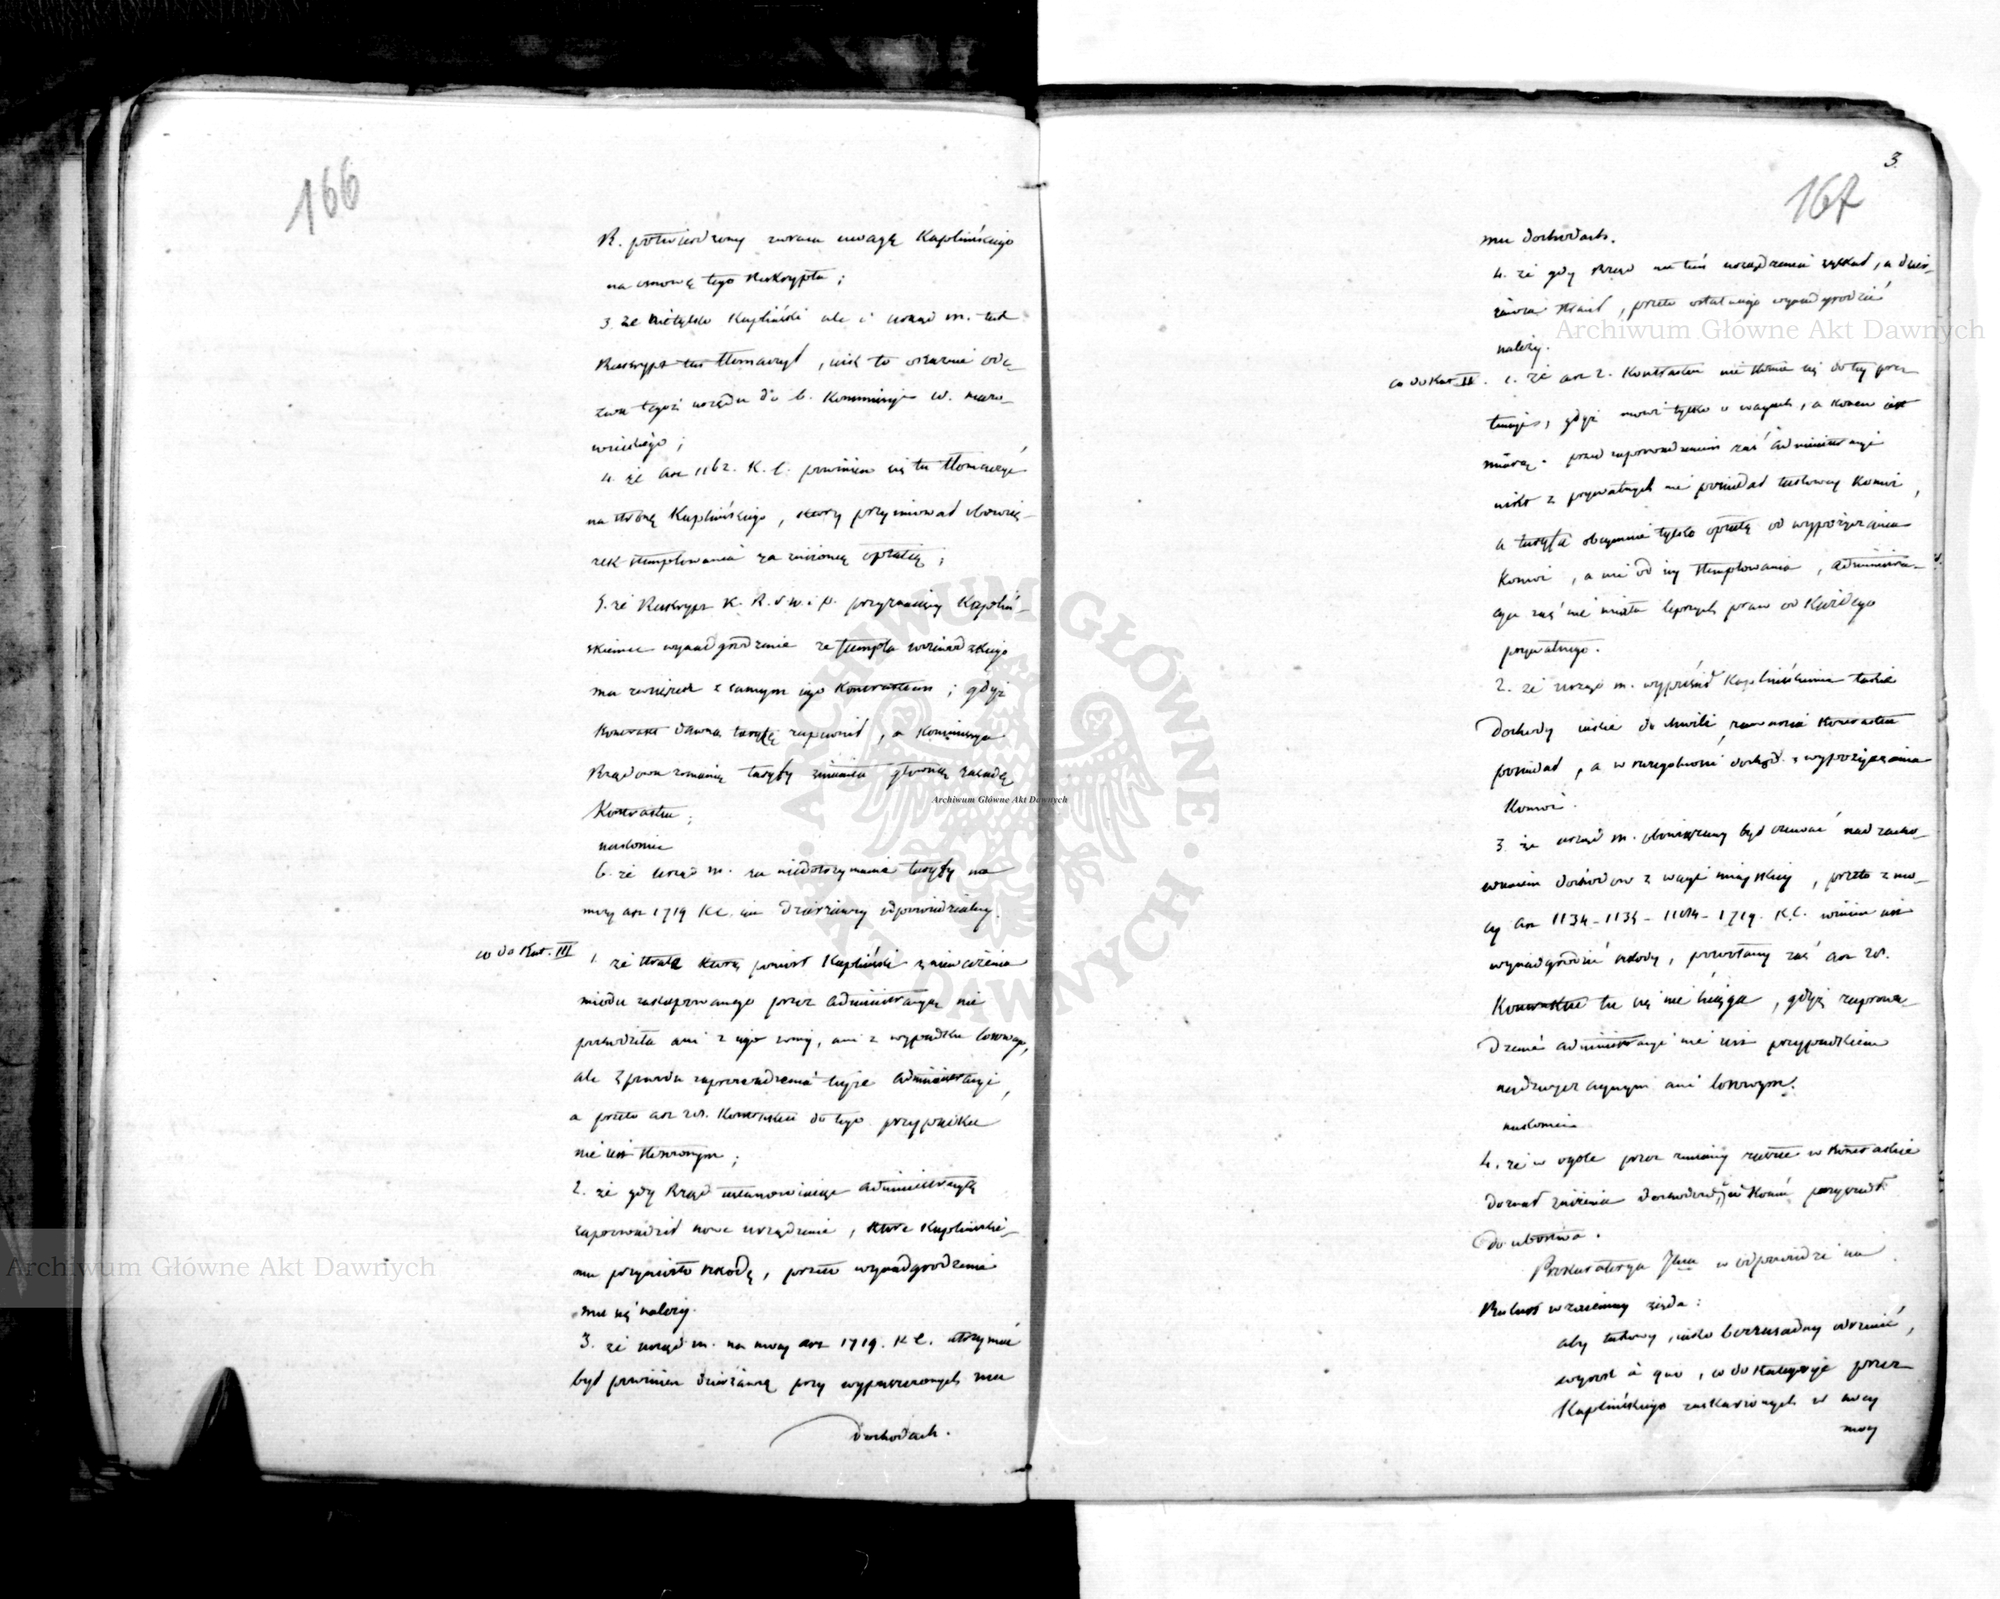 166
R. potwierdzony zwraca uwagę Kaplińskiego
na osnowę tego Reskryptu;
3. że nietylko Kapliński ale i urząd m. tak
Reskrypt ten tłomaczył, jak to okazuie ode-
zwa tegoż urzędu do b. Kommissyi W. Mazo-
wieckiego;
4. że art 1162. K. C. powinien się tu tłomaczyć
na stronę Kaplińskiego, który przyimował obowią-
zek stemplowania za zniżoną opłatą;
5. że Reskrypt K. R. S. W. i P. przyznaiący Kapliń-
skiemu wynadgrodzenie ze stempla
ma związek z samym iego Kontraktem; gdyż
Kontrakt dawną taryffę zapewnił, a Kommissya
Rządowa zmianą taryffy zmieniła główną zasadę
Kontraktu;
nakoniec
6. że urząd m. za niedotrzymanie taryffy na
mocy art 1719 K.C. iest dzierżawcy odpowiedzialny.
co do Kat. III
1. że strata którą poniósł Kapliński z
miodu zakupowanego przez Administracyą nie
pochodziła ani z iego winy, ani z wypadku losowego,
ale z powodu zaprowadzenia teyże Administracyi,
a przeto art 28. Kontraktu do tego przypadku
nie iest stosownym;
2. że gdy Rząd ustanowiaiąc Administracyą
zaprowadził nowe urządzenie, które Kaplińskie-
mu przyniosło szkodę, przeto wynadgrodzenie
mu się należy.
3. że urząd m. na mocy art 1719. K C. utrzymać
był powinien dzierżawcę przy wypuszczonych mu
dochodach.
3.
167
mu dochodach.
4. że gdy Rząd na tém urządzeniu zyskał, a dzier-
żawca stracił, przeto ostatniego wynadgrodzić
należy.
co do Kat. II.
1. że art 2. Kontraktu nie stosuie się do tey pre-
tensyi, gdyż mówi tylko o wagach, a konew iest
miarą. przed zaprowadzeniem zaś Administracyi
nikt z prywatnych nie posiadał takowey Konwi,
a taryffa obeymuie tylko opłatę od wypożyczania
Konwi, a nie od iey stemplowania, Administra-
cya zaś nie miała lepszych praw od Każdego
prywatnego.
2. że urząd m. wypuścił Kaplińskiemu takie
Dochody iakie do chwili zawarcia Kontraktu
posiadał, a w szczególności dochód z wypożyczania
Konwi.
3. że urząd m. obowiązany był czuwać nad zacho-
waniem dochodów z wagi mieyskiey, przeto z mo-
cy art 1134 - 1135 - 1184 - 1719. K.C. winien iest
wynadgrodzić szkody, powołany zaś art 28.
Kontraktu tu się nie ściąga, gdyż zaprowa-
dzenie Administracyi nie iest przypadkiem
nadzwyczaynym ani losowym.
nakoniec
4. że w ogóle przez zmiany zaszłe w Kontrakcie
doznał zniżenia dochodów, iż Końcu przyszedł
do ubóstwa.
Prokuratorya Jlna w odpowiedzi na
Rekurs wzaiemny żąda:
aby takowy, iako bezzasadny odrzucić,
wyrok à quo, co do Kategoryi przez
Kaplińskiego zaskarżonych w mocy
mocy
Archiwum Główne Akt Dawnych
Archiwum Główne Akt Dawnych
Archiwum Główne Akt Dawnych
ARCHIWUM GŁÓWNE AKT DAWNYCH